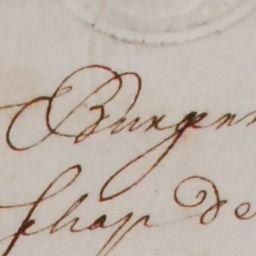 Burger
schap de